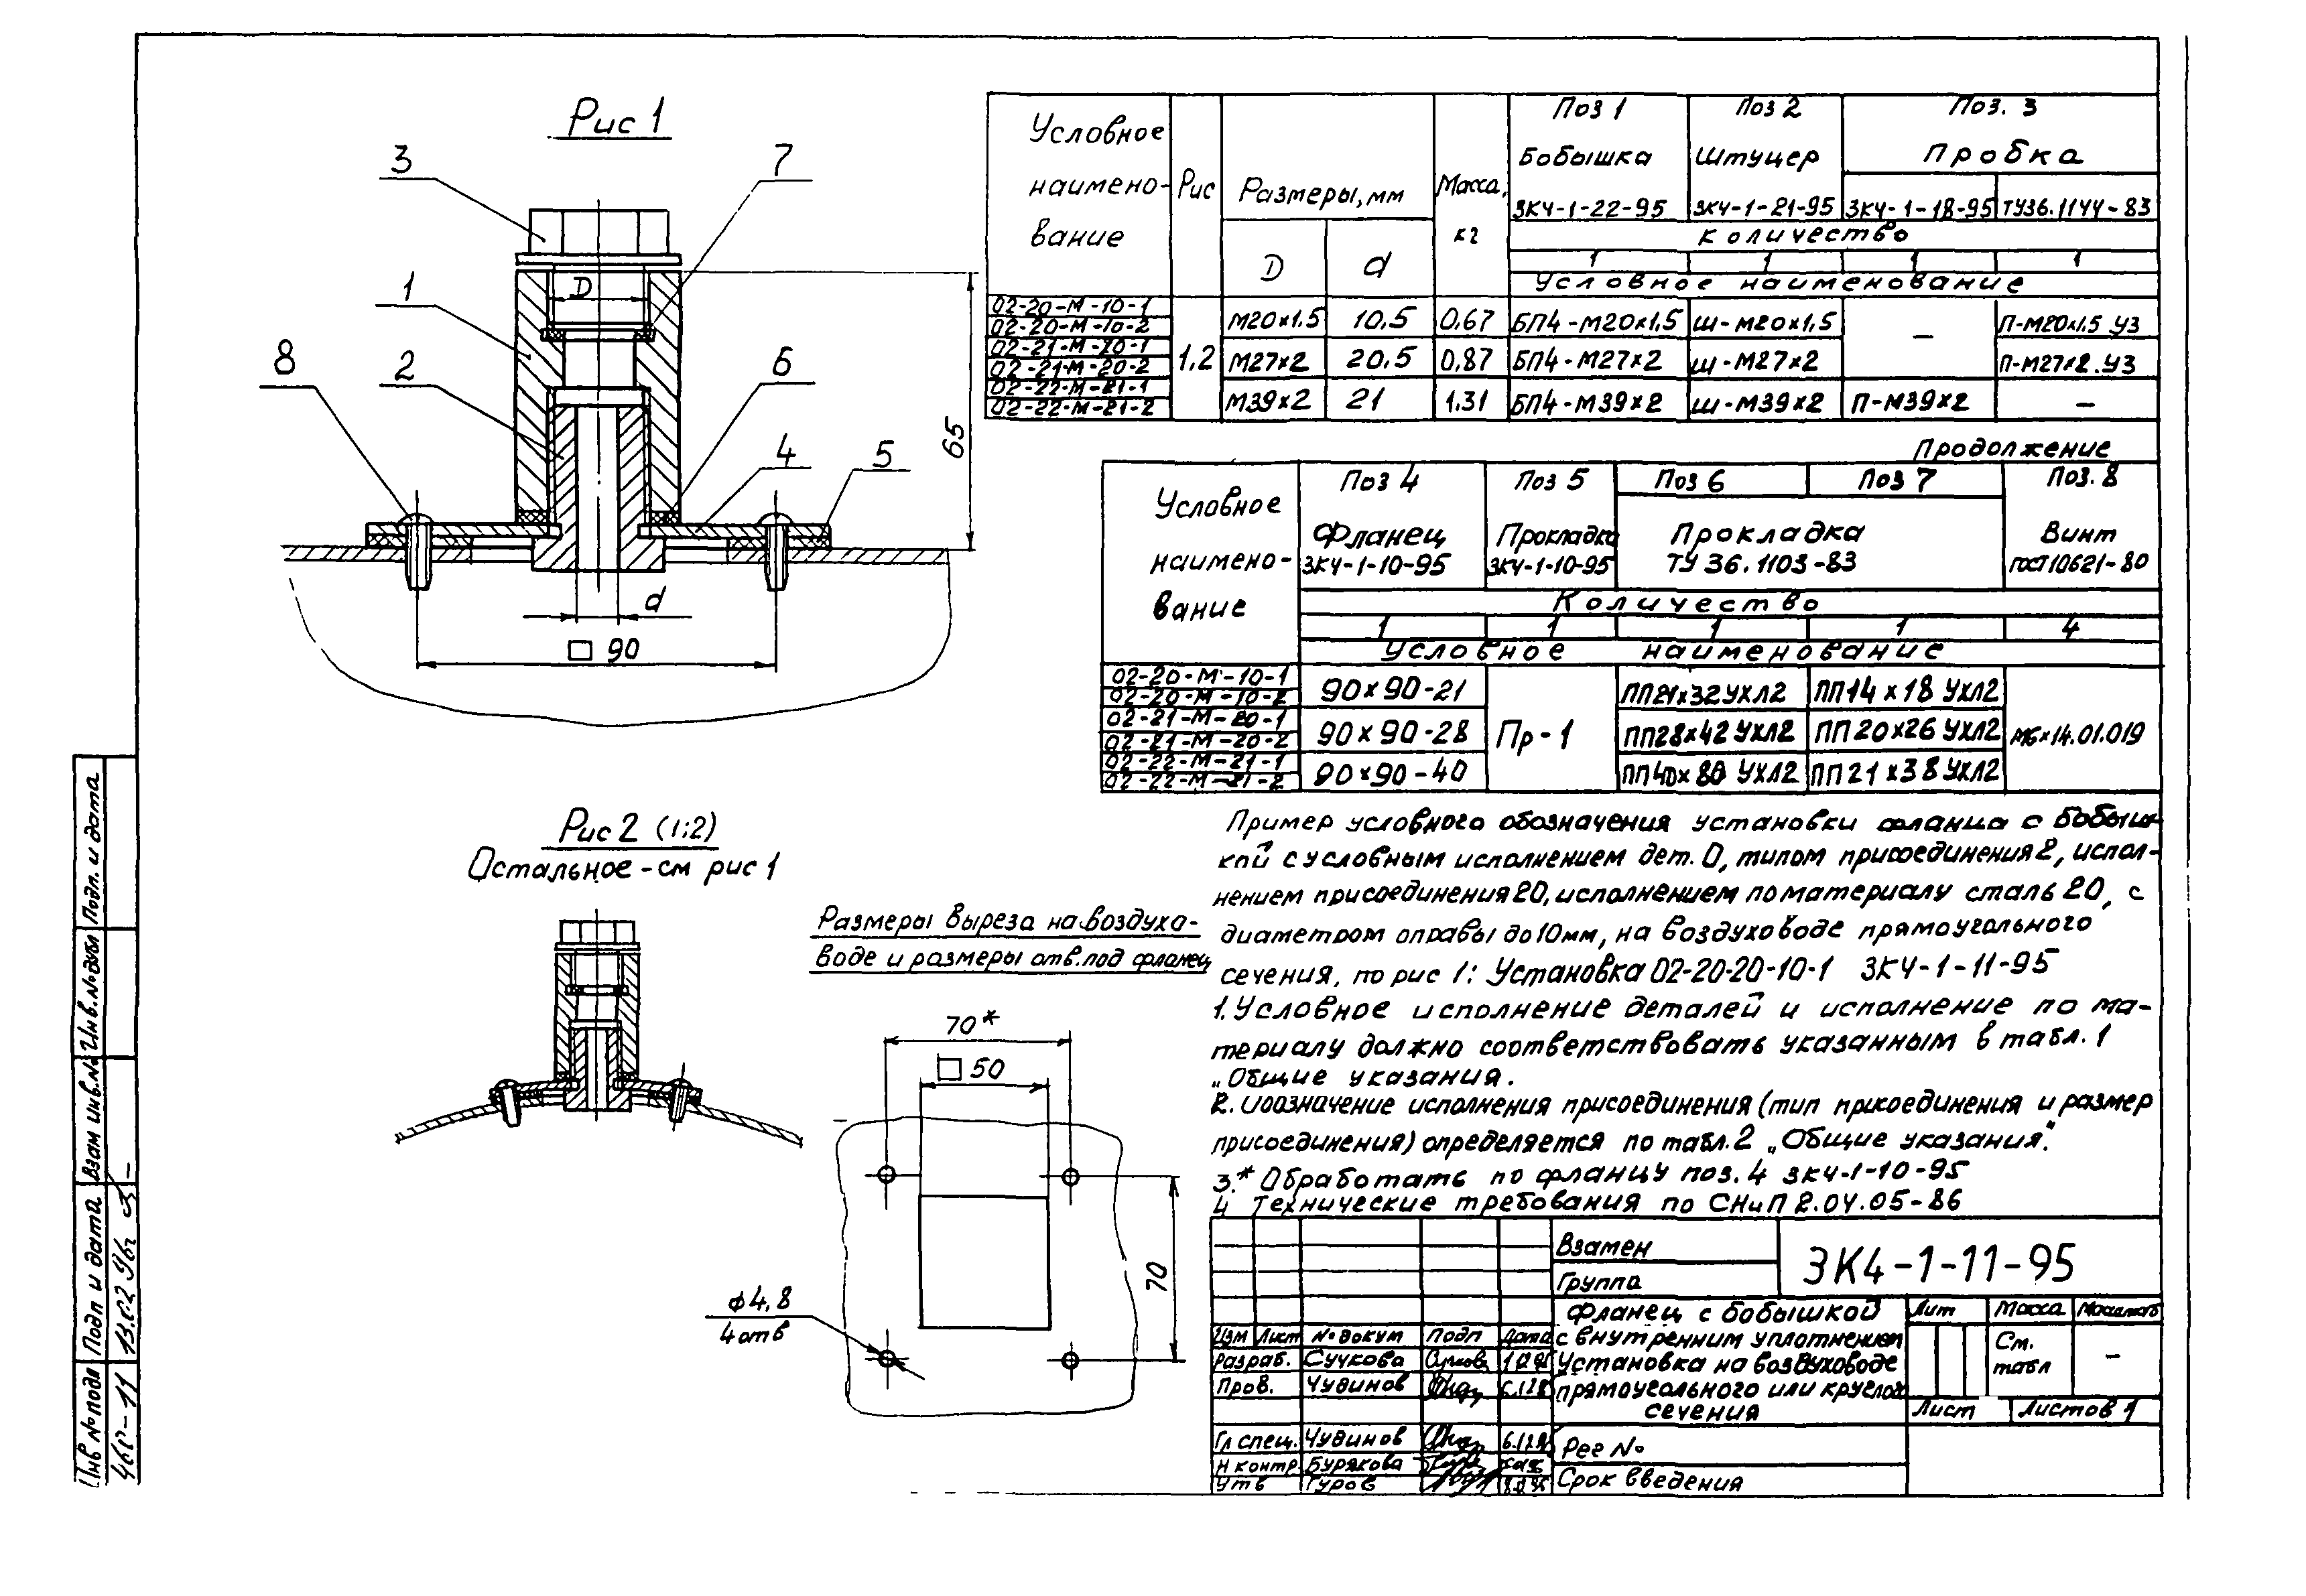 Рис 1
3
7
1
D
8
2
6
65
4
5
d
□ 90
Условное наимено-вание
Рис
Размеры, мм
D
d
Масса, кг
Поз 1
Бобышка
ЗК4-1-22-95
Поз 2
Штуцер
ЗК4-1-21-95
Поз. 3
Пробка
ЗК4-1-18-95
ТУ36.1144-83
Количество
1 1 1 1
Условное наименование
02-20-М-10-1
02-20-М-10-2
М20х1.5 10,5 0,67 БП4-М20х1,5 Ш-М20х1,5 – П-М20х1.5 У3
02-21-М-20-1
02-21-М-20-2
1,2
М27х2 20,5 0,87 БП4-М27х2 Ш-М27х2 П-М27х2.У3
02-22-М-21-1
02-22-М-21-2
М39х2 21 1,31 БП4-М39х2 Ш-М39х2 П-М39х2 –
Продолжение
Условное наимено-вание
Поз 4
Фланец
ЗК4-1-10-95
Поз 5
Прокладка
ЗК4-1-10-95
Поз 6
Поз 7
Прокладка
ТУ 36.1103-83
Поз. 8
Винт
ГОСТ10621-80
Количество
1 1 1 1 4
Условное наименование
02-20-М-10-1
02-20-М-10-2
90х90-21 ПП21х32УХЛ2 ПП14х18 УХЛ2
02-21-М-20-1
02-21-М-20-2
90х90-28 Пр-1 ПП28х42 УХЛ2 ПП20х26 УХЛ2 М6х14.01.019
02-22-М-21-1
02-22-М-21-2
90х90-40 УХЛ2 ПП21х38 УХЛ2
Рис 2 (1:2)
Остальное-см рис 1
Размеры выреза на воздухо-
воде и размеры отв. под фланец
70*
□ 50
70
ф4,8
4 отв
Пример условного обозначения установки фланца с бобыш-
кой с условным исполнением дет. 0, типом присоединения 2, испол-
нением присоединения 20, исполнением по материалу сталь 20, с
диаметром оправы до 10мм, на воздуховоде прямоугольного
сечения, по рис 1: Установка 02-20-20-10-1 ЗК4-1-11-95
1. Условное исполнение деталей и исполнение по ма-
териалу должно соответствовать указанным в табл. 1
„Общие указания.
2. Обозначение исполнения присоединения (тип присоединения и размер
присоединения) определяется по табл. 2 „Общие указания".
3.* Обработать по фланцу поз. 4 ЗК4-1-10-95
4 Технические требования по СНиП 2.04.05-86
Взамен
Группа
ЗК4-1-11-95
Фланец с бобышкой
с внутренним уплотнением
Установка на воздуховоде
прямоугольного или круглого
сечения
Лит Масса Масштаб
См. табл –
Лист Листов 1
Изм Лист № докум Подп Дата
Разраб. Сучкова
Пров. Чудинов
Гл спец. Чудинов
Н контр Бурякова
Утв Гуров
Рег №
Срок введения
Инв № подл Подп и дата Взам инв. № Инв. № дубл Подп. и дата